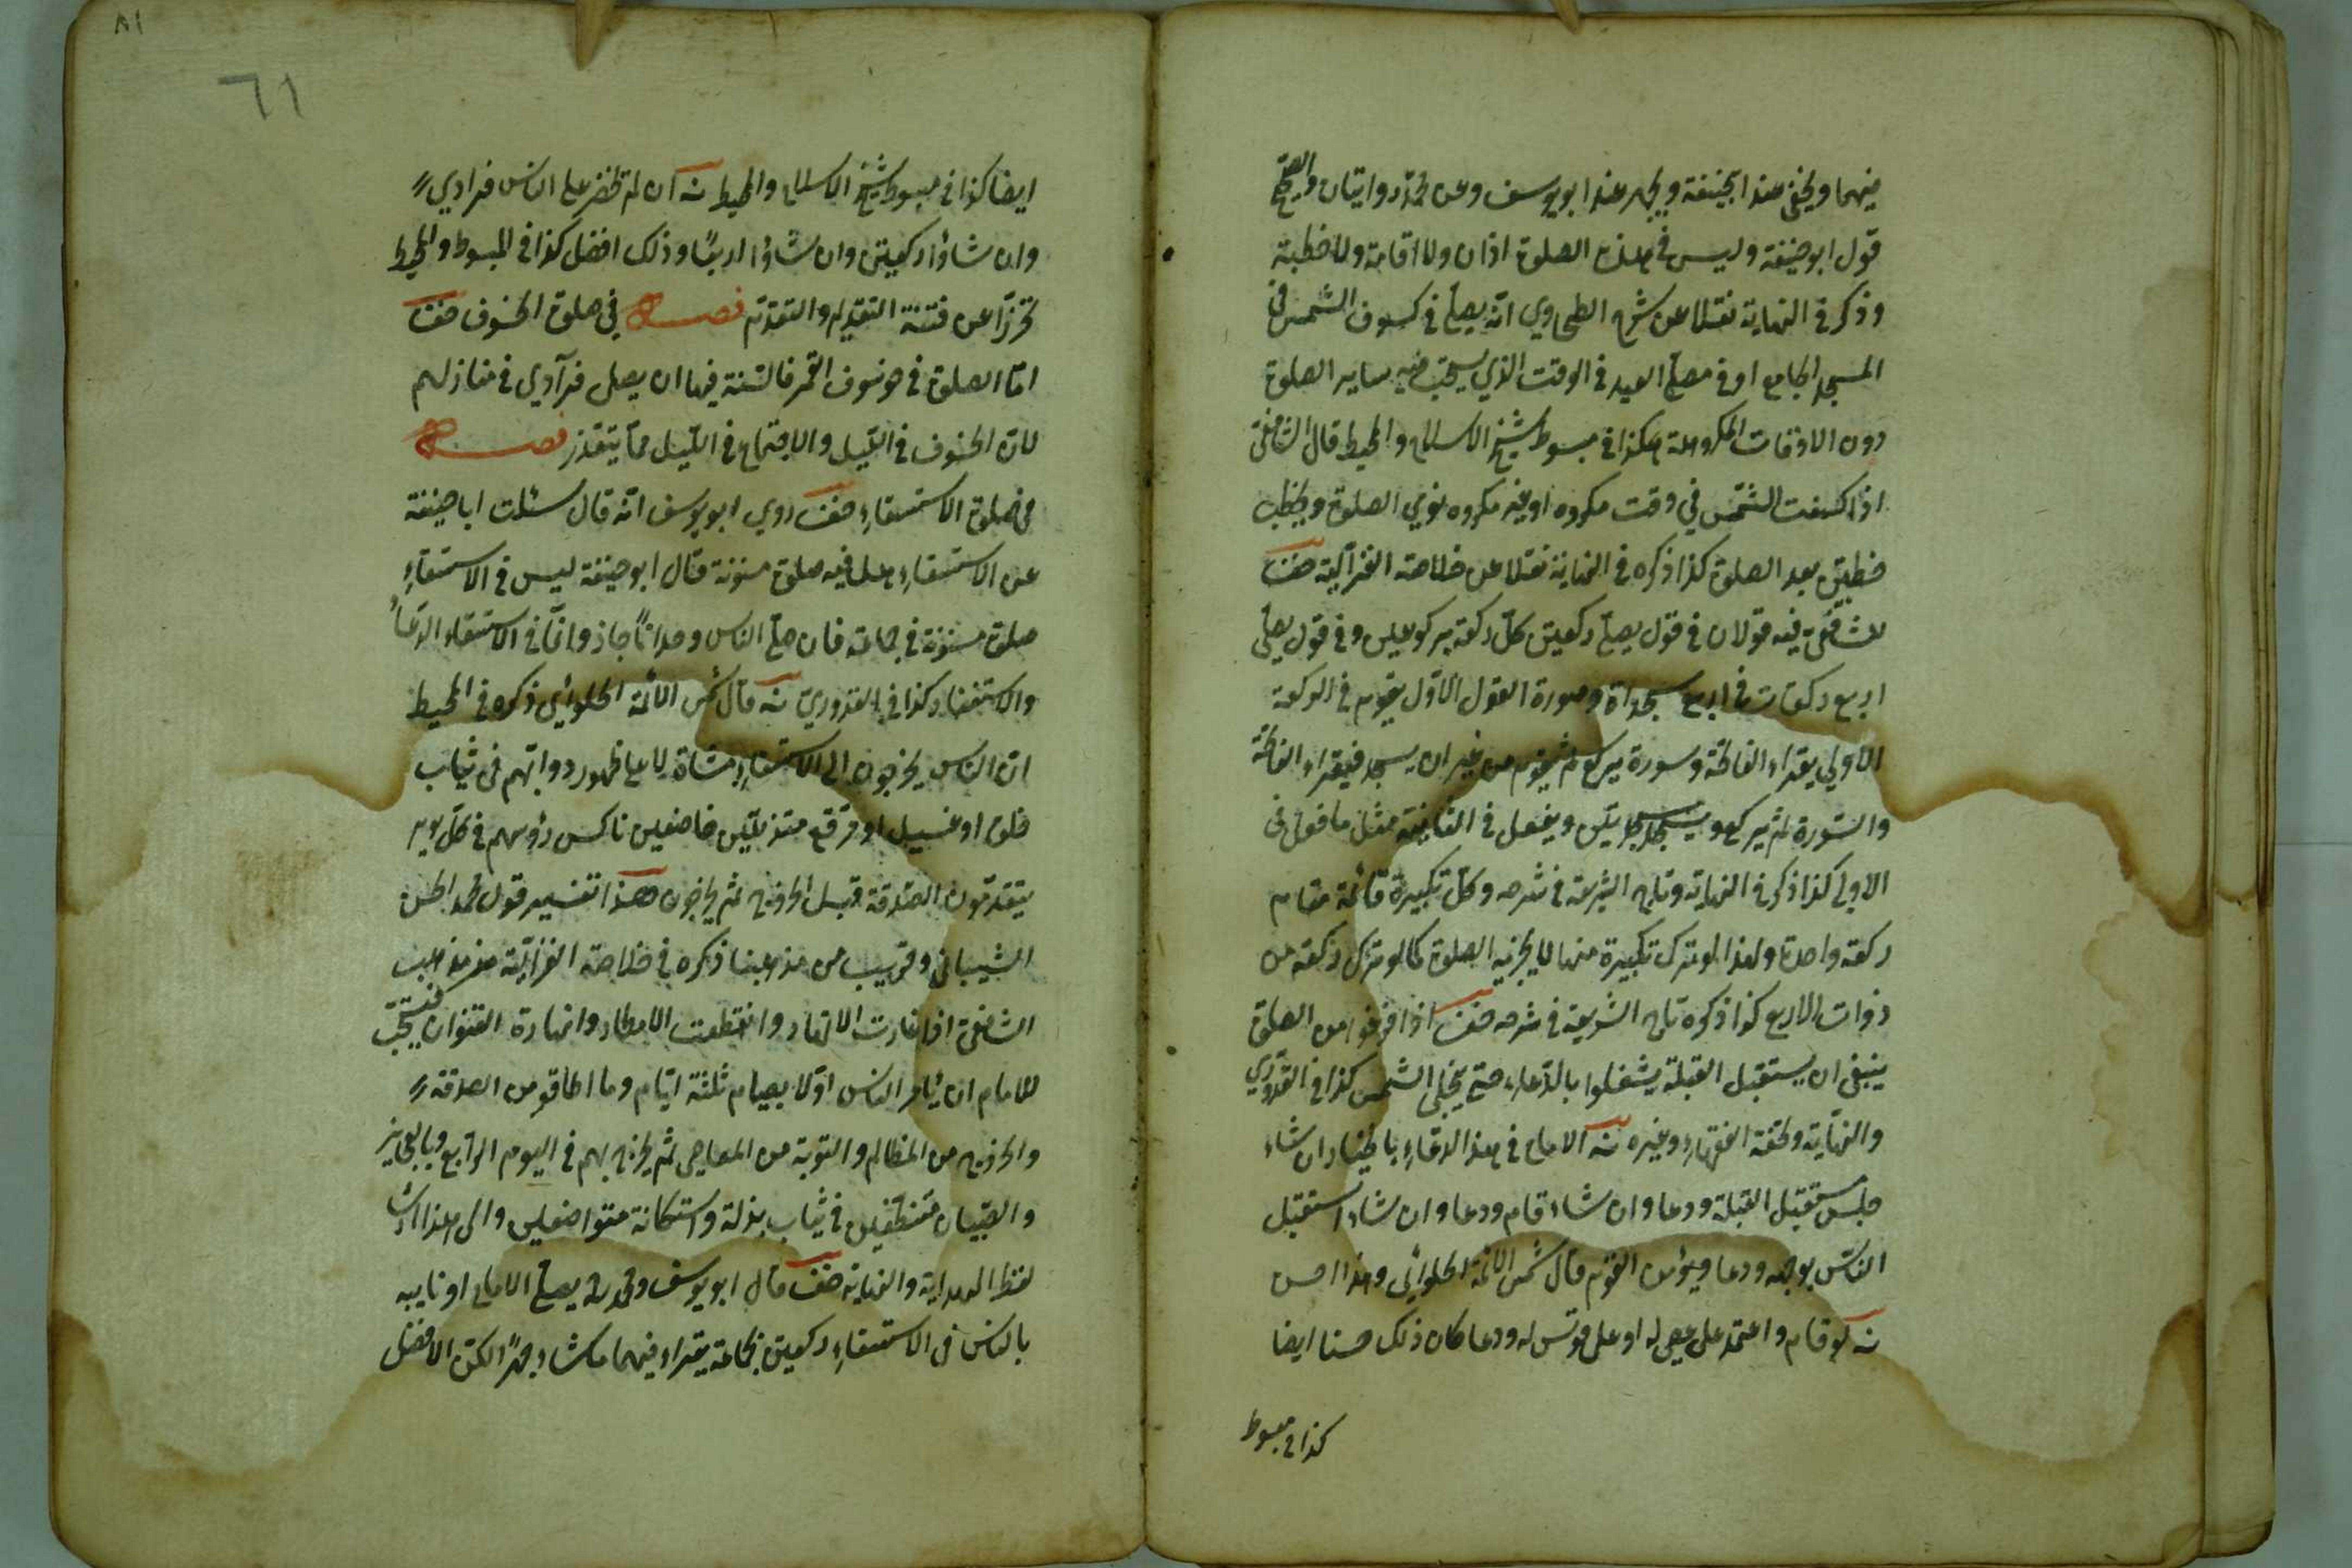 فيهما ويخفى عند ابيحنيفة ويجهر عند ابو يوسف وعن محمد روايتان والصحيح
قول ابو حنيفة وليس في هذه الصلوة اذان ولا اقامة ولا خطبة
وذكر في النهاية نقلا عن شرح الطحاوي انه يصلى في كسوف الشمس في
المسجد الجامع او في مصلى العيد في الوقت الذي يستحب فيه ساير الصلوة
دون الاوقات المكروهة هكذا في مبسوط شيخ الاسلام والمحيط قال الشافعى
اذا كسفت الشمس في وقت مكروه او غير مكروه نودي الصلوة ويخطب
خطبتين بعد الصلوة كذا ذكره في النهاية نقلا عن خلاصة الغزالية
للشافعى فيه قولان في قول يصلى ركعتين كل ركعة بركوعين وفي قول يصلى
اربع ركعات في اربع سجداة وصورة القول الاول يقوم في الركعة
الاولي يقراء الفاتحة وسورة يركع ثم يقوم من غير ان يسجد فيقراء الفاتحة
والسورة ثم يركع ويسجد سجدتين ويفعل في الثانية مثل ما فعل في
الاولى كذا ذكر في النهاية وتاج الشريعة في شرحه وكل تكبيرة قائمة مقام
ركعة واحدة ولهذا لو ترك تكبيرة منها لا يجزيه الصلوة كما لو ترك ركعة من
ذوات الاربع كذا ذكره تاج الشريعة في شرحه اذا فرغوا من الصلوة
ينبغى ان يستقبل القبلة يشغلوا بالدعاء حتى ينجلى الشمس كذا في القدوري
والنهاية وتحفة الفقهاء وغيره الامام في هذا الدعاء بالخيار ان شاء
جلس مستقبل القبلة ودعا وان شاء قام ودعا وان شاء استقبل
الناس بوجهه ودعا ويؤمن القوم قال شمس الائمة الحلوائي وهذا احسن
لو قام واعتمد على عصى له او على قوس له ودعا كان ذلك حسنا ايضا
كذا في مبسوط
٨١
٦١
ايضا كذا في مبسوط شيخ الاسلام والمحيط ان لم يحضر على الناس فرادي
وان شاؤا ركعتين وان شاؤا اربعًا وذلك افضل كذا في المبسوط والمحيط
تحرزًا عن فتنة التقديم والتقدّم فصل في صلوة الخسوف
امّا الصلوة في خوسوف القمر فالسنة فيها ان يصلى فرآدي في منازلهم
لان الخسوف في الليل والاجتماع في الليل مما يتعذر فصل
في صلوة الاستسقاء روي ابو يوسف انه قال سئلت ابا حنيفة
عن الاستسقاء هل فيه صلوة مسنونة قال ابو حنيفة ليس في الاستسقاء
صلوة مسنونة في جماعة فان صلى الناس وحدانًا جاز وانما في الاستسقاء الدعاء
والاستغفار كذا في القدوري قال شمس الائمة الحلوائي ذكره في المحيط
ان الناس يخرجون الى الاستسقاء مشاة لا على ظهور دوابهم في ثياب
خلق او غسيل او مرقع متذللين خاضعين ناكس رؤسهم في كل يوم
يتقدمون الصدقة قبل الخروج ثم يخرجون هذا تفسير قول محمد الحسن
الشيباني وقريب من مذهبنا ذكره في خلاصة الغزالية من مذهب
الشافعى اذا غارت الانهار وانقطعت الامطار وانهارة القنوات فيستحب
للامام ان يأمر الناس اولا بصيام ثلثة ايام وما اطاقو من الصدقة
والخروج من المظالم والتوبة من المعاصى ثم يخرج بهم في اليوم الرابع وبالعجايز
والصبيان متنظفين في ثياب بذلة واستكانة متواضعين والى هذا اشار
لفظ الهداية والنهاية قال ابو يوسف ومحمد يصلى الامام او نايبه
بالناس في الاستسقاء ركعتين بجماعة يقراء فيهما ما شاء جهرًا لكن الافضل